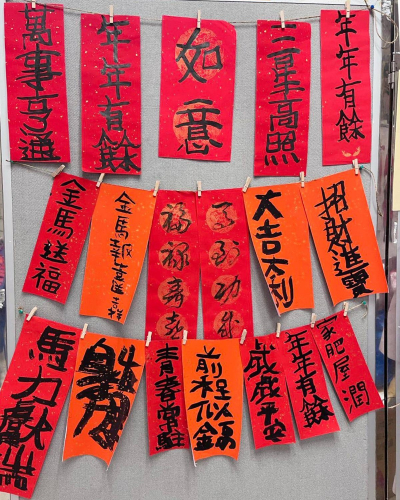 萬事亨通
年年有餘
如意
三星高照
年年有餘
金馬送福
金馬報喜吉祥
福祿壽喜
馬到功成
大吉大利
招財進寶
馬力獻
青春常駐
前程似錦
歲歲平安
年年有餘
家肥屋潤